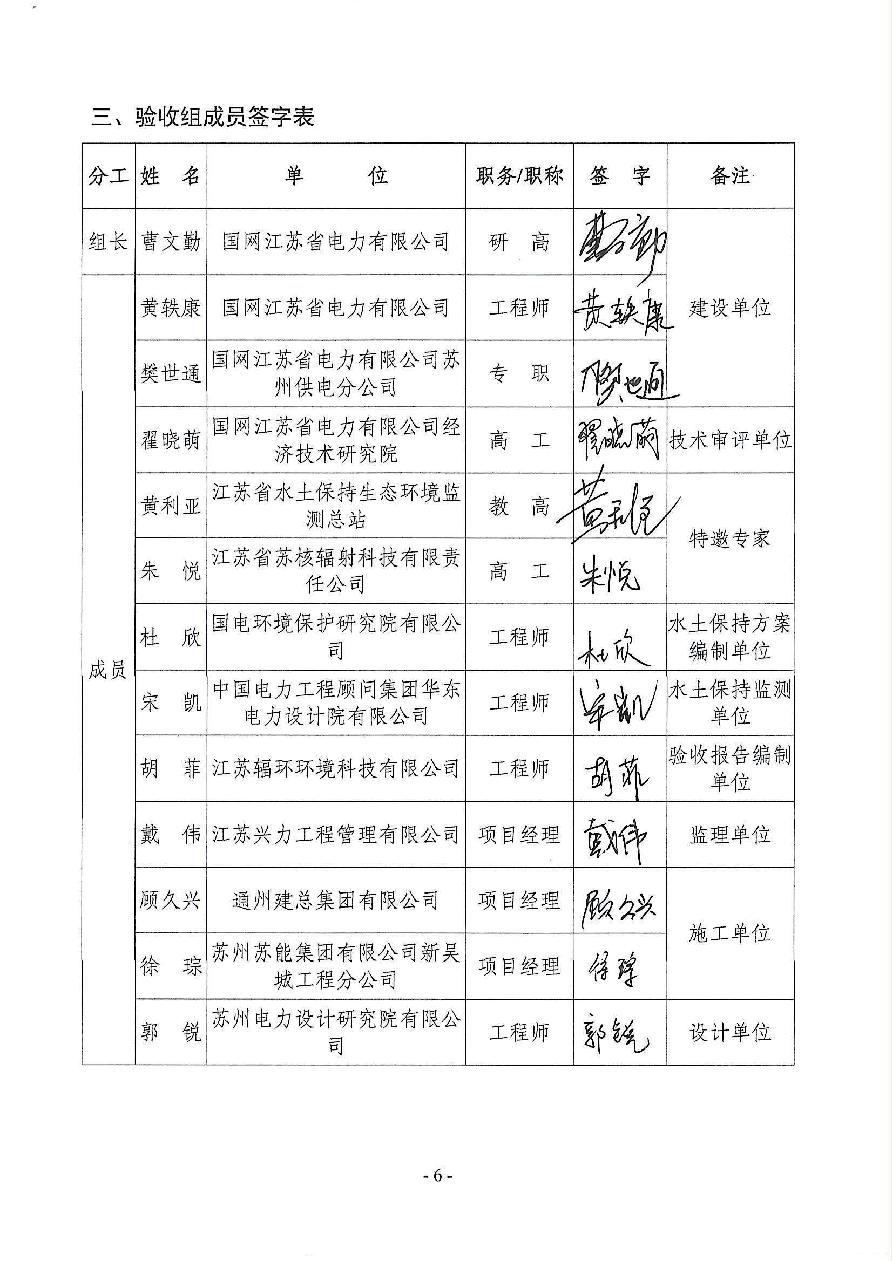 三、验收组成员签字表
分工 姓 名 单 位 职务/职称 签 字 备注
组长 曹文勤 国网江苏省电力有限公司 研 高 曹文勤 建设单位
成员
黄轶康 国网江苏省电力有限公司 工程师 黄轶康
樊世通 国网江苏省电力有限公司苏
州供电分公司 专 职 樊世通
翟晓萌 国网江苏省电力有限公司经
济技术研究院 高 工 翟晓萌 技术审评单位
黄利亚 江苏省水土保持生态环境监
测总站 教 高 特邀专家
朱 悦 江苏省苏核辐射科技有限责
任公司 高 工 朱悦
杜 欣 国电环境保护研究院有限公
司 工程师 杜欣 水土保持方案
编制单位
宋 凯 中国电力工程顾问集团华东
电力设计院有限公司 工程师 宋凯 水土保持监测
单位
胡 菲 江苏辐环环境科技有限公司 工程师 胡菲 验收报告编制
单位
戴 伟 江苏兴力工程管理有限公司 项目经理 戴伟 监理单位
顾久兴 通州建总集团有限公司 项目经理 顾久兴 施工单位
徐 琮 苏州苏能集团有限公司新吴
城工程分公司 项目经理 徐琮
郭 锐 苏州电力设计研究院有限公
司 工程师 郭锐 设计单位
- 6 -